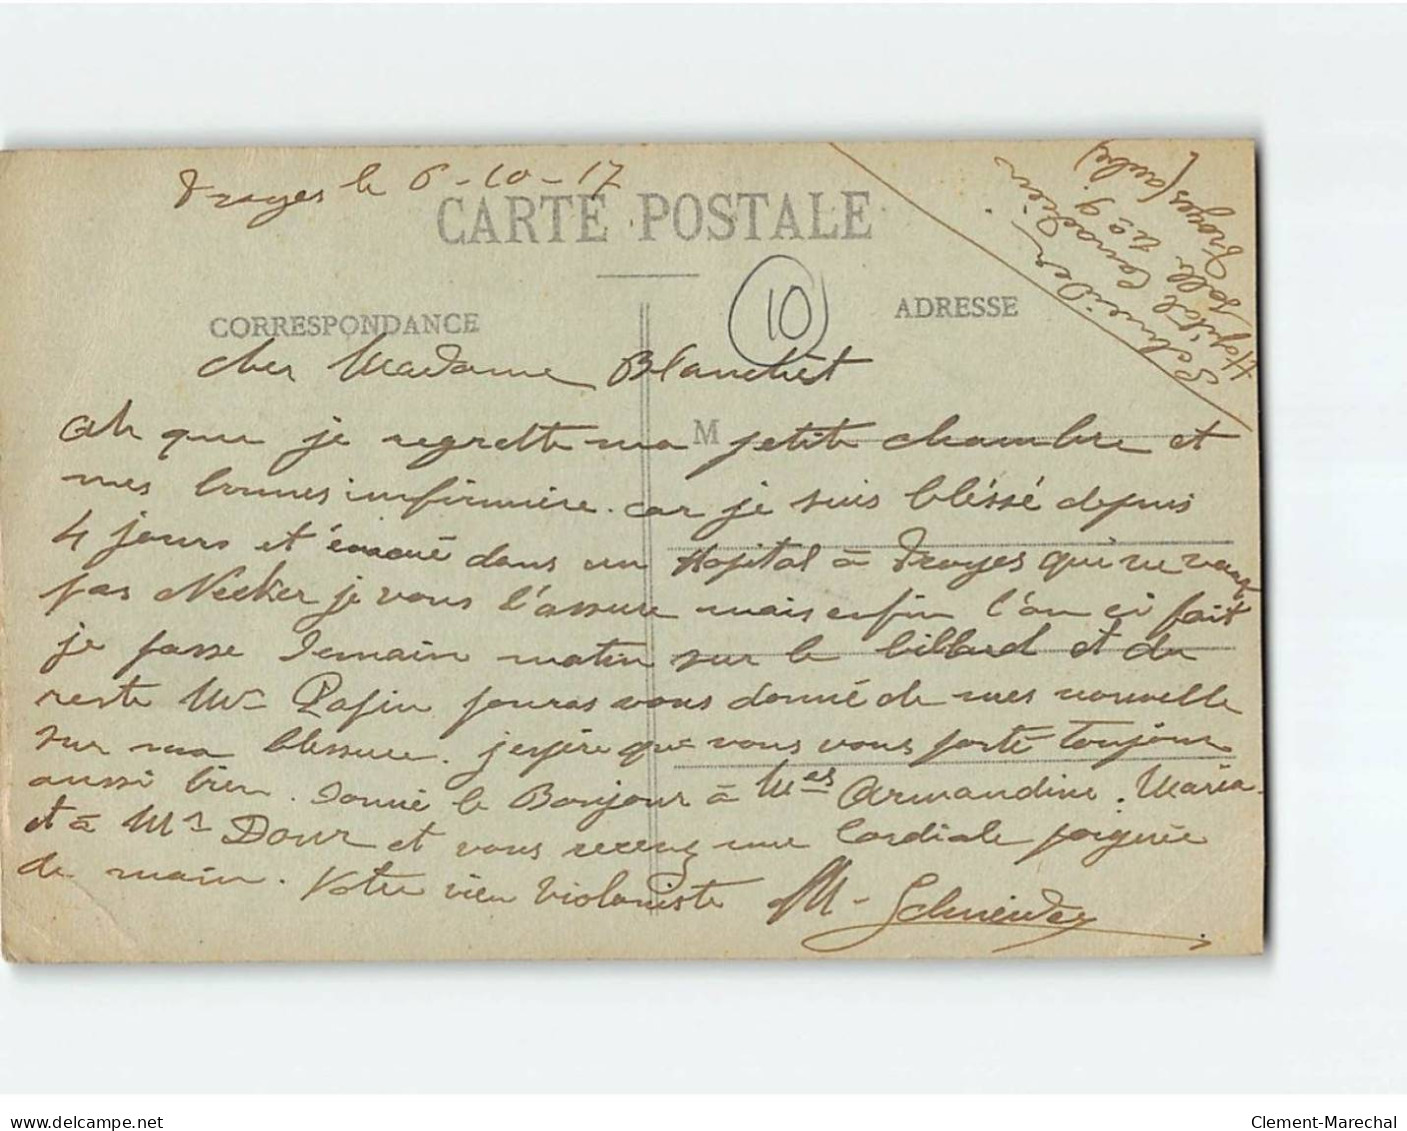 Troyes le 6-10-17
CARTE POSTALE
Schneider
Hopital Canadien
Salle no 9
Troyes (aube)
10
CORRESPONDANCE
ADRESSE
cher Madame Blanchet
M
Ah que je regrette ma petite chambre et
mes bonnes infirmière. car je suis bléssé depuis
4 jours et évacué dans un Hopital à Troyes qui ne vaux
pas Necker je vous l'assure mais enfin l'on ci fait
je passe demain matin sur le billard et du
reste Mr Papin pouras vous donné de mes nouvelle
sur ma blessure. j'espère que vous vous porté toujour
aussi bien. donné le Bonjour à Mes Armandine. Maria.
et à Mr Dour et vous recevez une Cordiale poignée
de main. Votre vieu violoniste M. Schneider
delcampe.net
Clement-Marechal